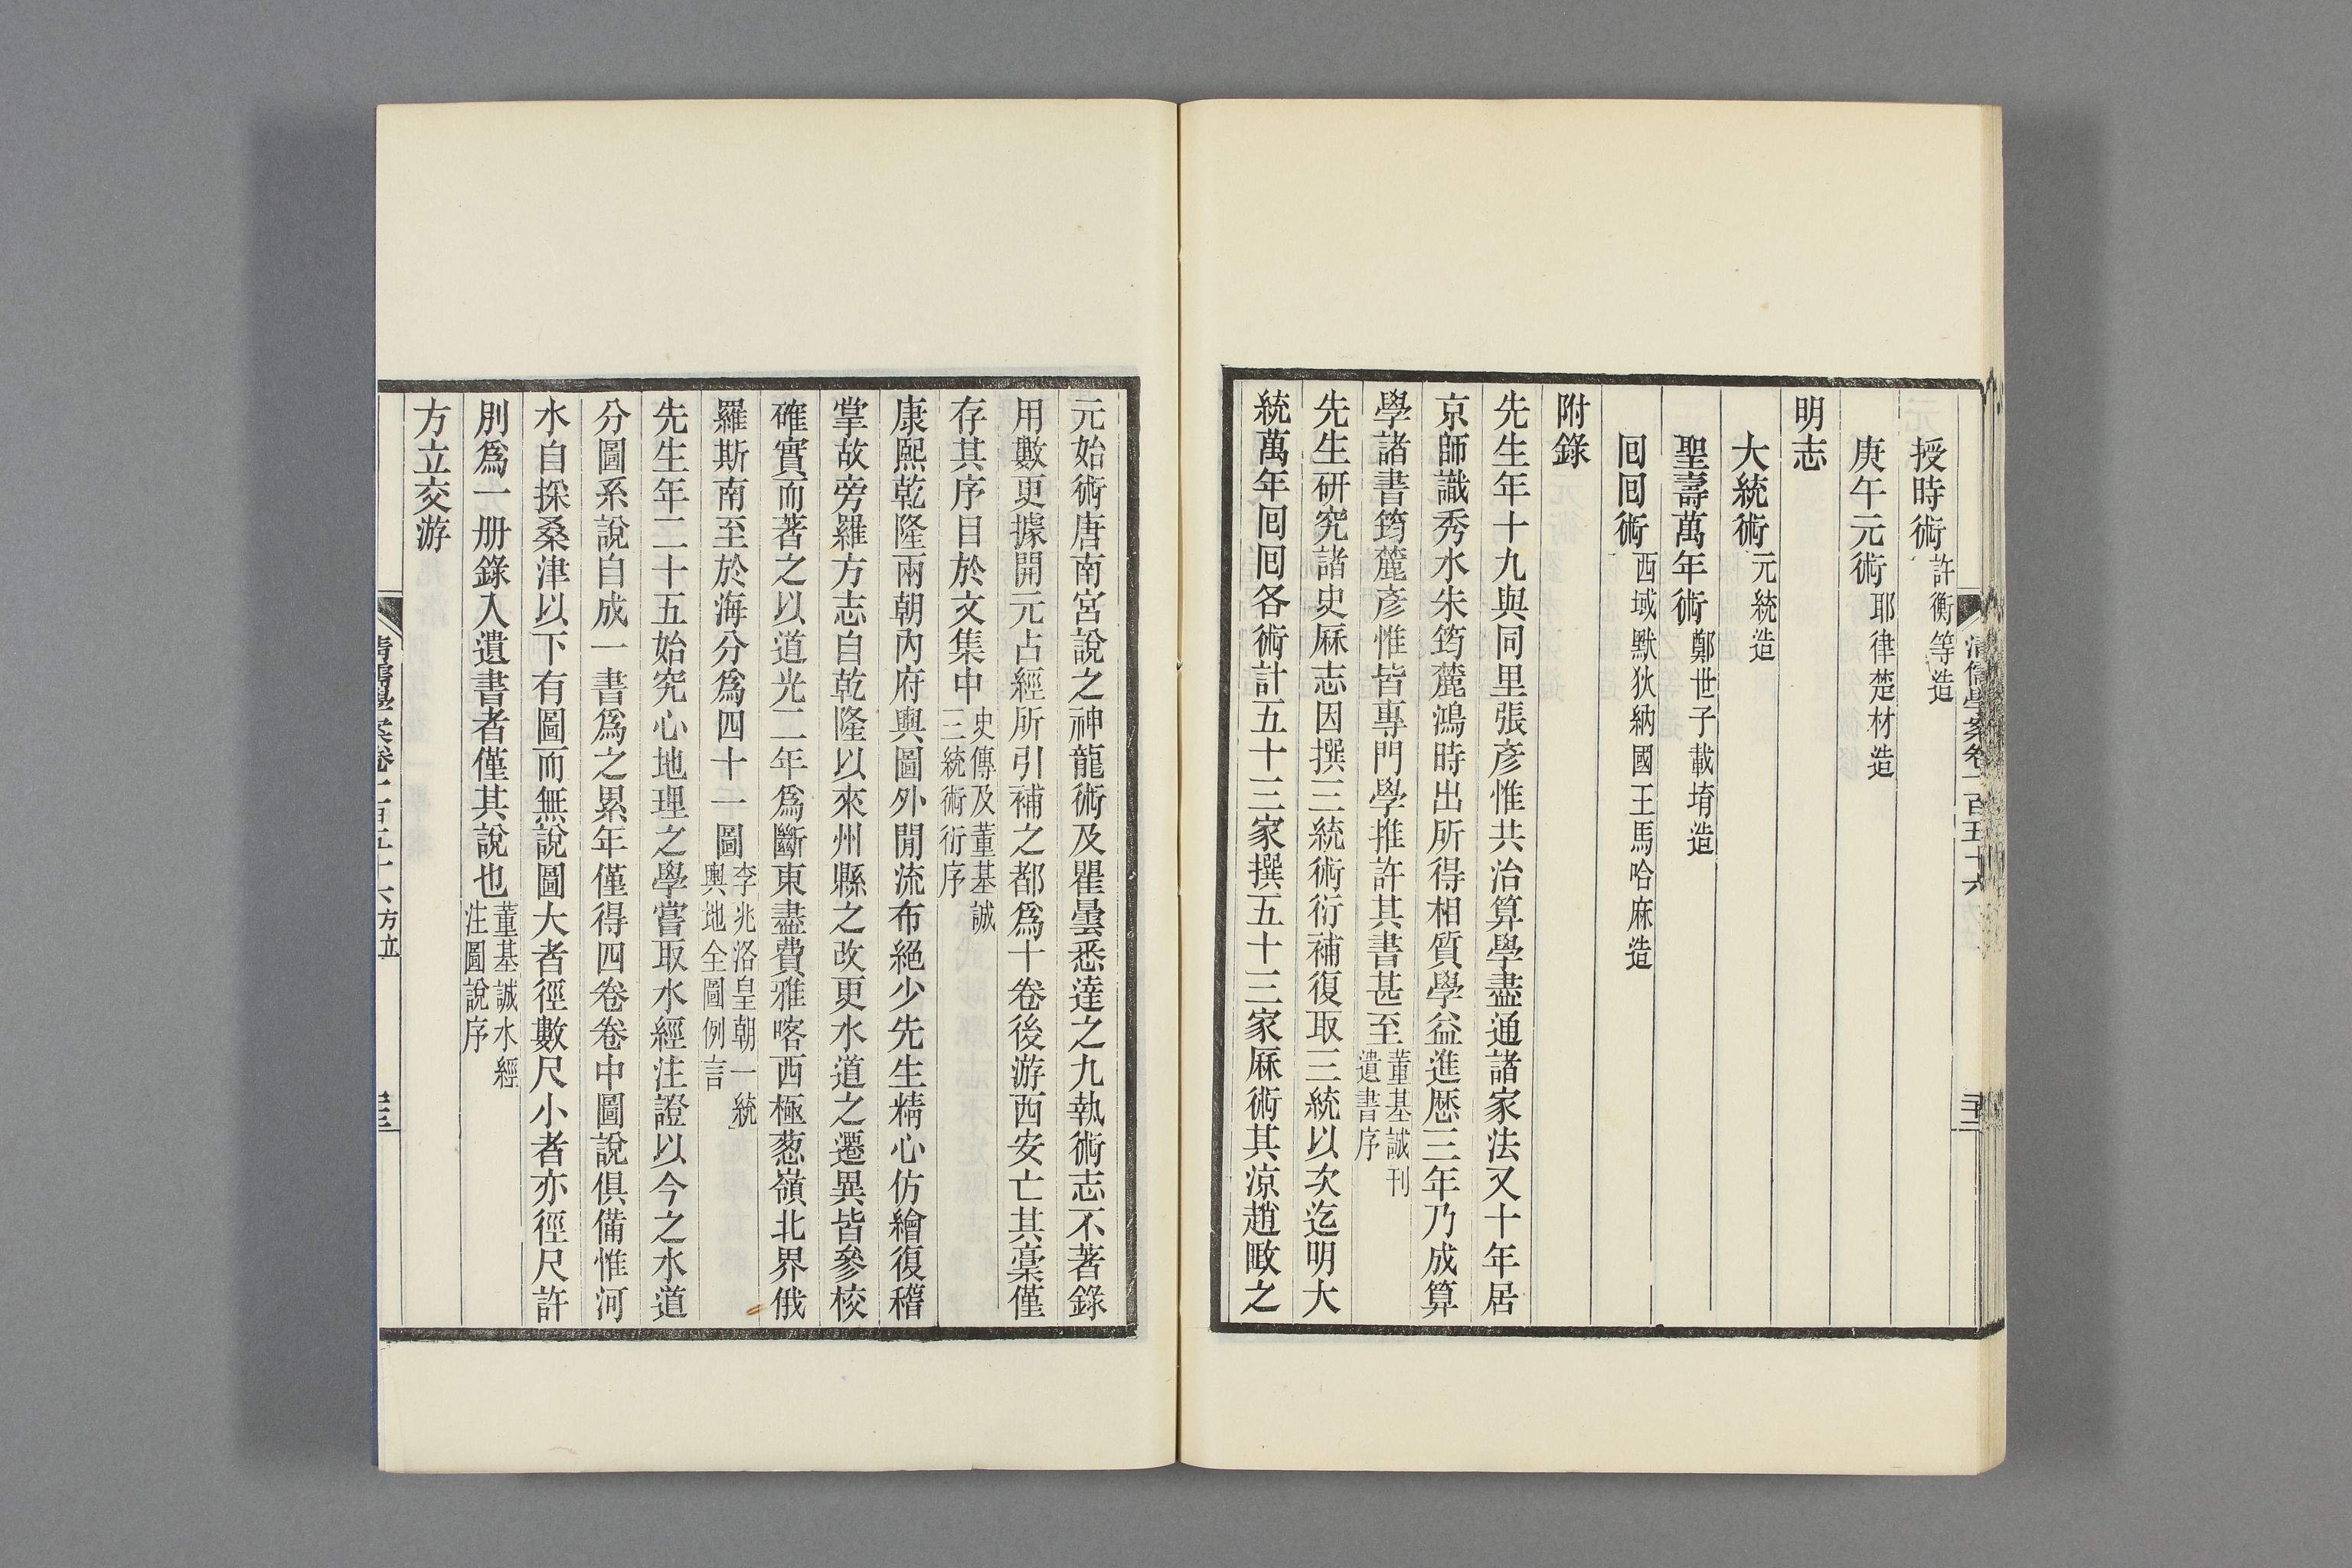 授時術許衡等造
庚午元術耶律楚材造
明志
大統術元統造
聖壽萬年術鄭世子載堉造
回回術西域默狄納國王馬哈麻造
附錄
先生年十九與同里張彥惟共治算學盡通諸家法又十年居
京師識秀水朱筠麓鴻時出所得相質學益進歷三年乃成算
學諸書筠麓彥惟皆專門學推許其書甚至董基誠刊遺書序
先生研究諸史厤志因撰三統術衍補復取三統以次迄明大
統萬年回回各術計五十三家撰五十三家厤術其涼趙𢾺之
元始術唐南宮說之神龍術及瞿曇悉達之九執術志不著錄
用數更據開元占經所引補之都爲十卷後游西安亡其稾僅
存其序目於文集中史傳及董基誠三統術衍序
康熙乾隆兩朝內府輿圖外閒流布絕少先生精心仿繪復稽
掌故旁羅方志自乾隆以來州縣之改更水道之遷異皆參校
確實而著之以道光二年爲斷東盡費雅喀西極蔥嶺北界俄
羅斯南至於海分爲四十一圖李兆洛皇朝一統輿地全圖例言
先生年二十五始究心地理之學嘗取水經注證以今之水道
分圖系說自成一書爲之累年僅得四卷卷中圖說俱備惟河
水自採桑津以下有圖而無說圖大者徑數尺小者亦徑尺許
別爲一册錄入遺書者僅其說也董基誠水經注圖說序
方立交游
清儒學案卷一百五十六方立